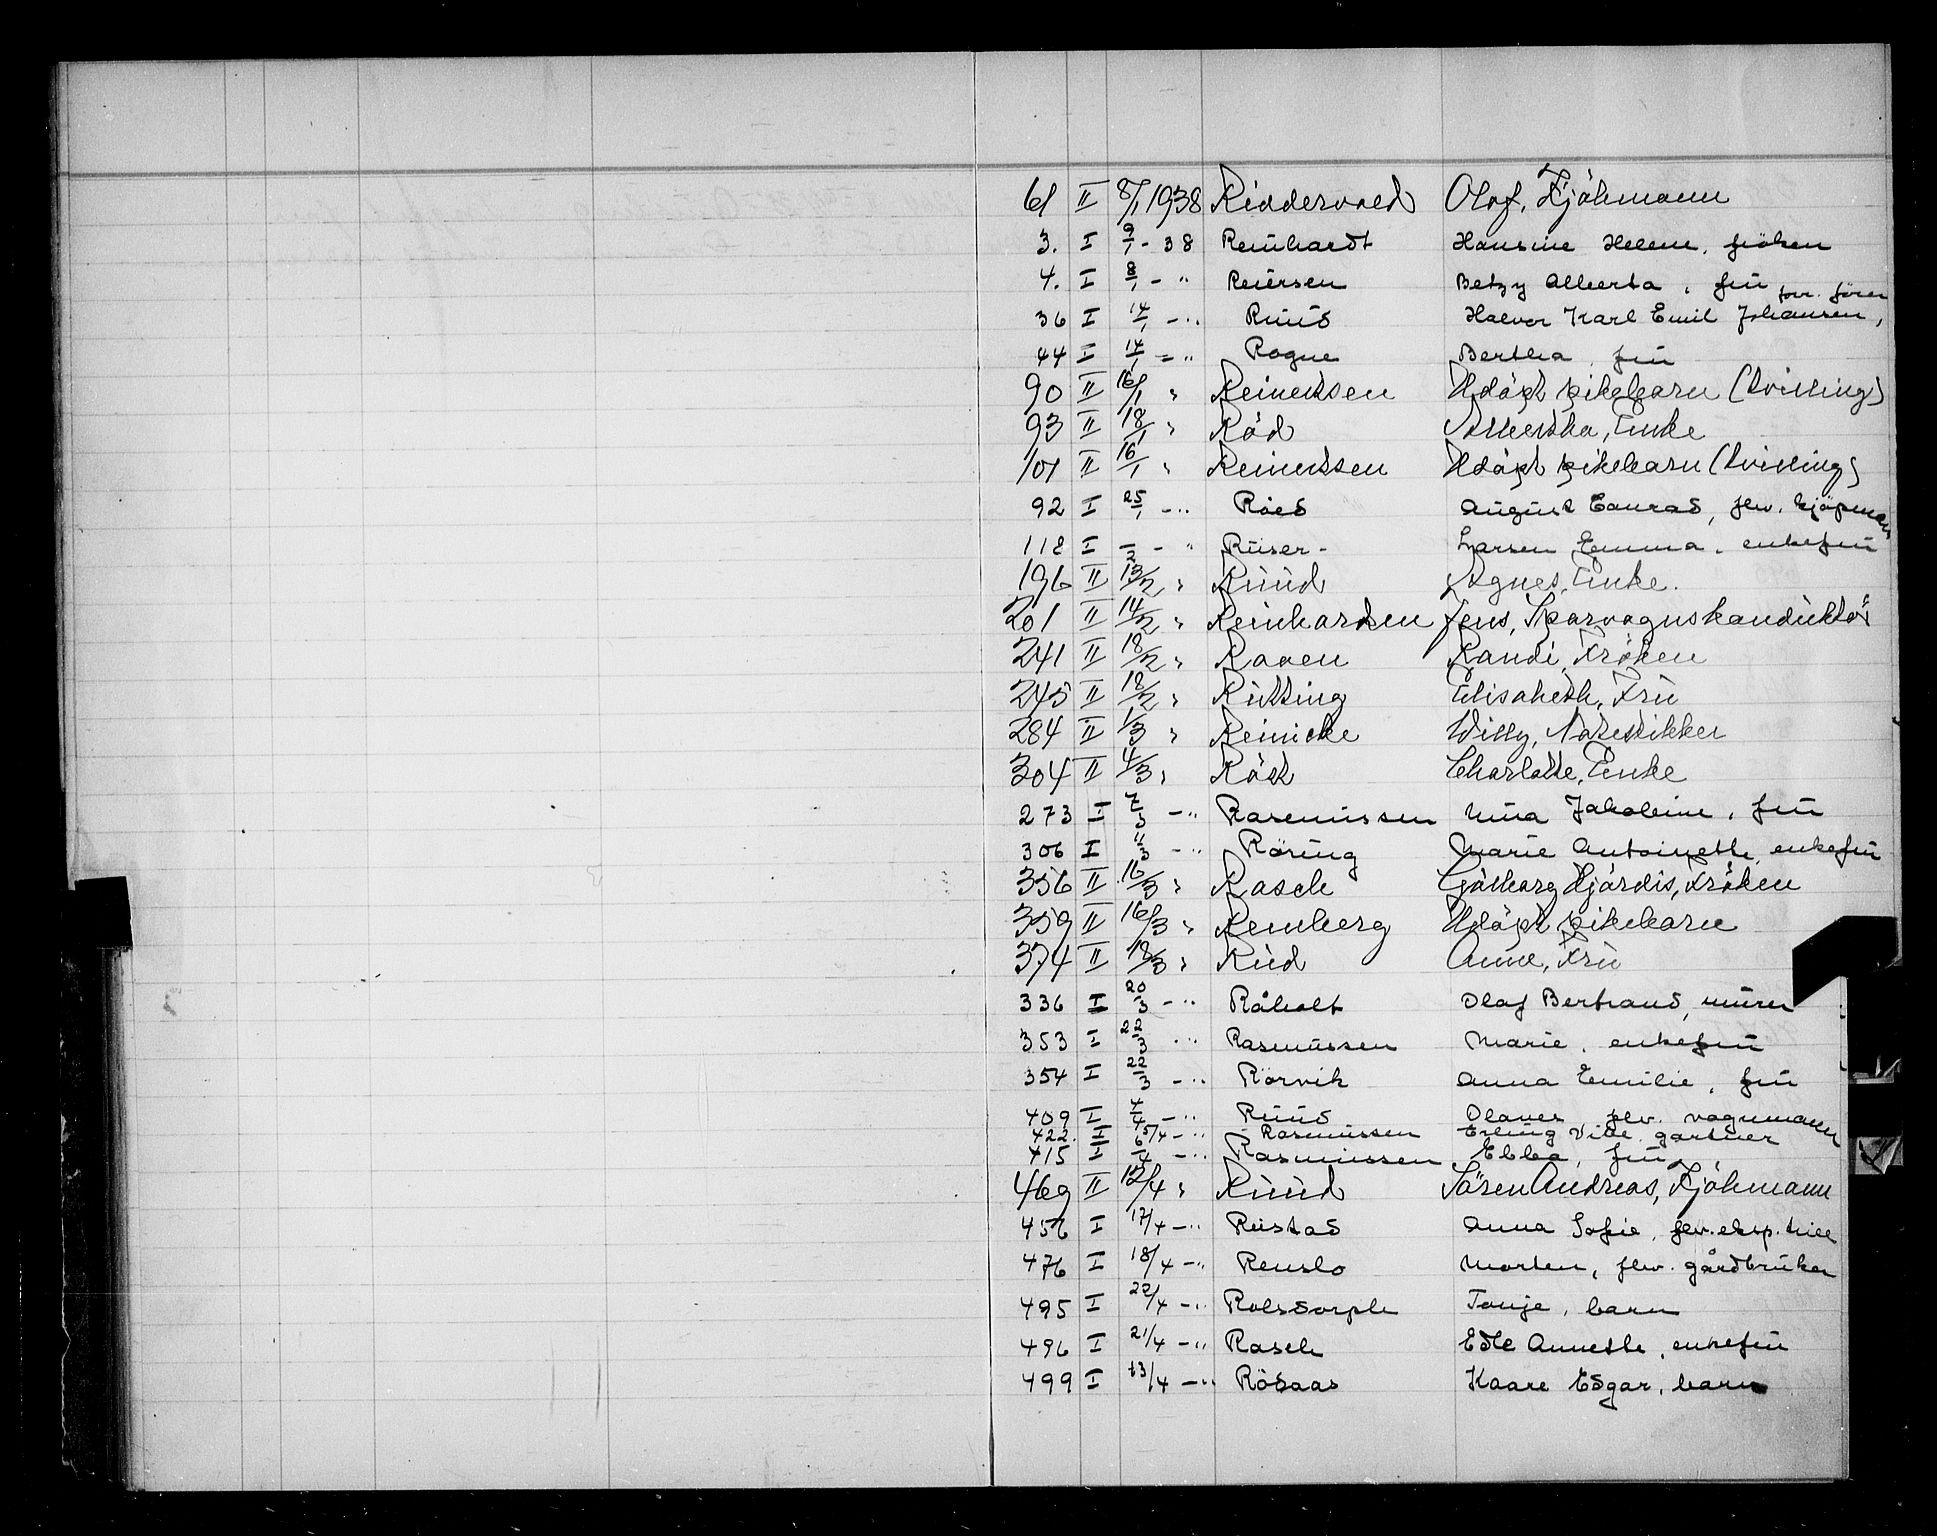 61 II 8/1 1938 Riddervold Olaf, Sjömann
3. I 9/1 - 38 Reinhardt Hansine Helene, fröken
4. I 8/1 - " Reiersen Betzy Alberta, frü
36 I 14/1 - " Rüüd Halvor Karl Emil Johansen, forr. fører
44 I 14/1 - " Rogne Bertha, frü
90 II 16/1 " Reinertsen Udöpt pikebarn (tvilling)
93 II 18/1 " Röd Alberta, Enke
101 II 16/1 " Reinertsen Udöpt pikebarn (tvilling)
92 I 25/1 - " Röed Aügüst Conrad, flv. kjöpmann
118 I - - " Rüser - Larsen Emma, enkefrü
196 II 13/2 " Rüüd Agnes, Enke.
201 II 14/2 " Reinhardsen Jens, Sporvognskondüktör
241 II 18/2 " Raaen Randi, Fröken
245 II 18/2 " Rütting Elisabeth, Frü
284 II 1/3 " Reinicke Willy, Notestikker
304 II 4/3 " Röst Charlotte, Enke
273 I 7/3 - " Rasmüssen Nina Jakobine, frü
306 I 11/3 - " Röring Marie Antoinette, enkefrü
356 II 16/3 " Rasch Gjölborg Hjördis, Fröken
359 II 16/3 " Remberg Udöpt pikebarn
374 II 18/3 " Rüd Anne, Frü
336 I 20/3 - " Råholt Olaf Bertrand, mürer
353 I 22/3 - " Rasmüssen Marie, enkefrü
354 I 22/3 - " Rörvik Anna Emilie, frü
409 I 4/4 - " Rüüd Olaves flv. vognmann
422. I 5/4 - " Rasmüssen Erling Vide gartner
415 I 6/4 - " Rasmüssen Ebba, frü
469 II 12/4 " Rüüd Sören Andreas, Sjömann
456 I 17/4 - " Rüstad Anna Sofie, flv. eksp. trice
476 I 18/4 - " Renslo Morten, flv. gårdbrüker
495 I 22/4 - " Rolsdorph Tonje, barn
496 I 21/4 - " Rasch Edle Annette, enkefrü
499 I 23/4 - " Rösaas Kaare Edgar, barn